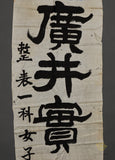 廣井實
整表一科女子